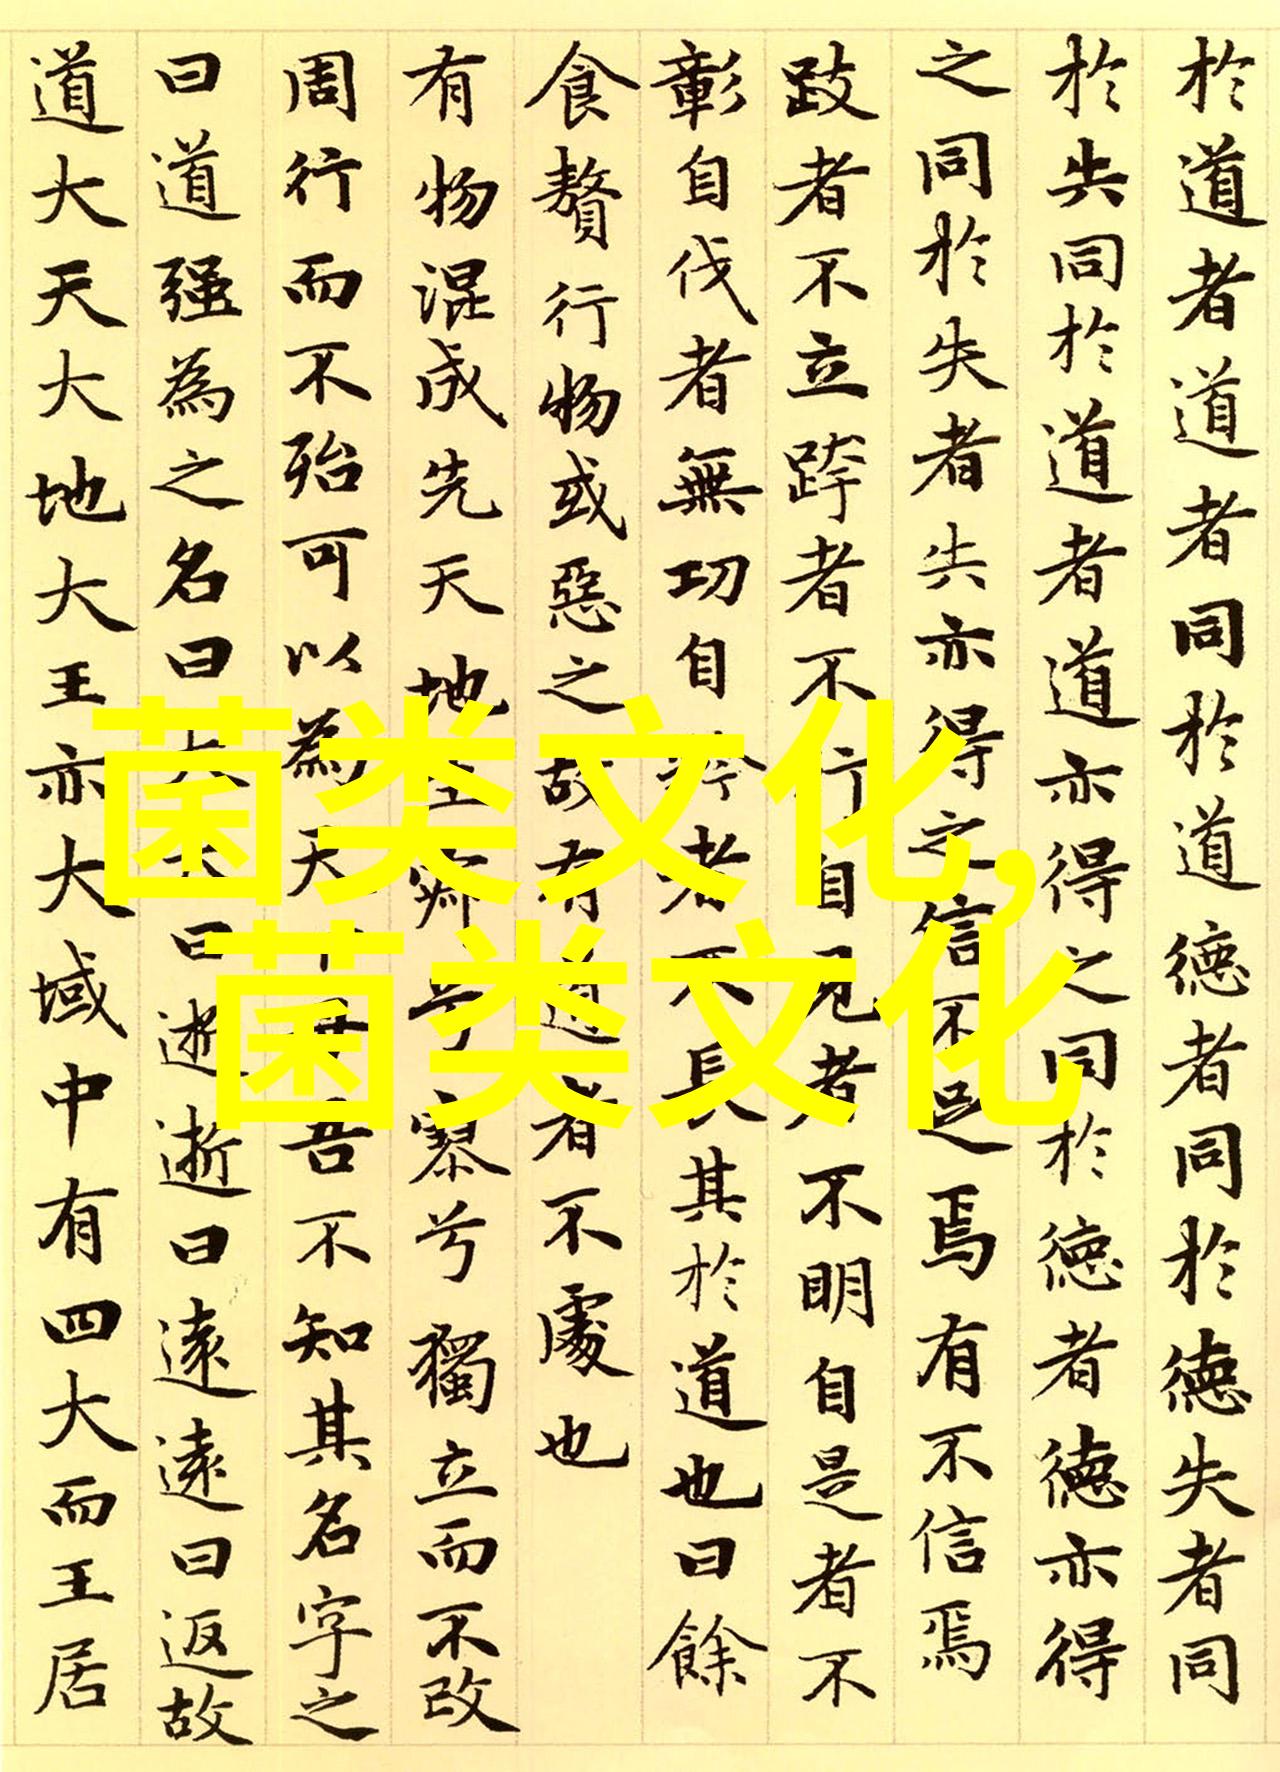 於道者道者同於道德者同於德失者同
於失同於道者道亦得之同於德者德亦得
之同於失者失亦得之信不足焉有不信焉
跂者不立跨者不行自見者不明自是者不
彰自伐者無功自矜者不長其於道也曰餘
食贅行物或惡之故有道者不處也
有物混成先天地生寂兮寥兮獨立而不改
周行而不殆可以為天下母吾不知其名字之
曰道强為之名曰大大曰逝逝曰遠遠曰返故
道大天大地大王亦大域中有四大而王居
菌类文化,
菌类文化